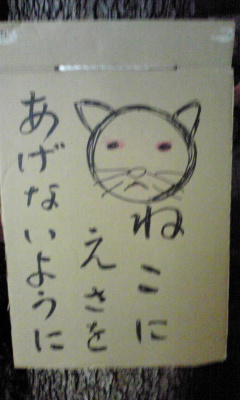 ねこに
えさを
あげないように